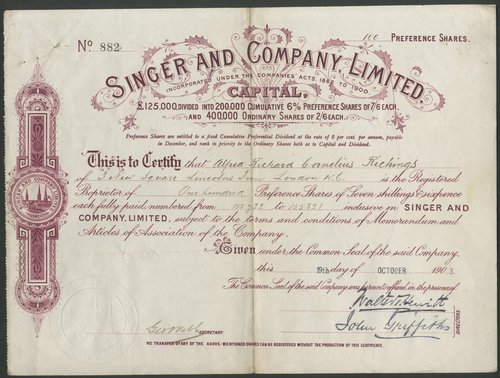 No 882
100 PREFERENCE SHARES.
SINGER AND COMPANY LIMITED
INCORPORATED UNDER THE COMPANIES' ACTS, 1862 TO 1900.
CAPITAL,
£125,000, DIVIDED INTO 200,000 CUMULATIVE 6% PREFERENCE SHARES OF 7/6 EACH,
AND 400,000 ORDINARY SHARES OF 2/6 EACH.
Preference Shares are entitled to a fixed Cumulative Preferential Dividend at the rate of 6 per cent. per annum, payable
in December, and rank in priority to the Ordinary Shares both as to Capital and Dividend.
This is to Certify that Alfred Richard Cornelius Richings
of 3 New Square Lincolns Inn London W.C. is the Registered
Proprietor of One hundred Preference Shares of Seven shillings & sixpence
each, fully paid, numbered from to 155821 inclusive in SINGER AND
COMPANY, LIMITED, subject to the terms and conditions of Memorandum and
Articles of Association of the Company.
Given under the Common Seal of the said Company,
this 19th day of OCTOBER 1903
The Common Seal of the said Company was hereunto affixed in the presence of
Walter Hewitt
John Griffiths
DIRECTORS
Geo Webb SECRETARY
NO TRANSFER OF ANY OF THE ABOVE-MENTIONED SHARES CAN BE REGISTERED WITHOUT THE PRODUCTION OF THIS CERTIFICATE.